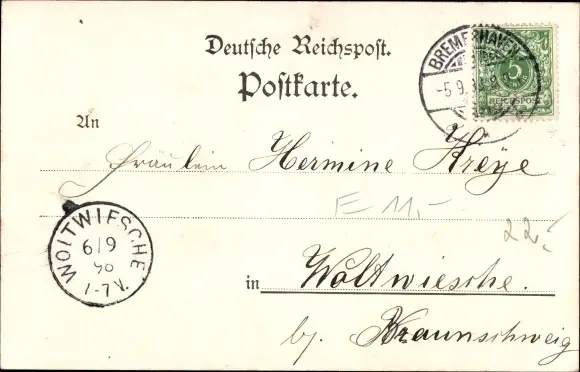 Deutsche Reichspost.
Postkarte.
BREMERHAVEN
-5.9.
5
REICHSPOST
An
Fräulein Hermine Kreye
E 11,-
22.-
WOLTWIESCHE
6/9
98
1-7V.
in Woltwiesche.
bj. Braunschweig